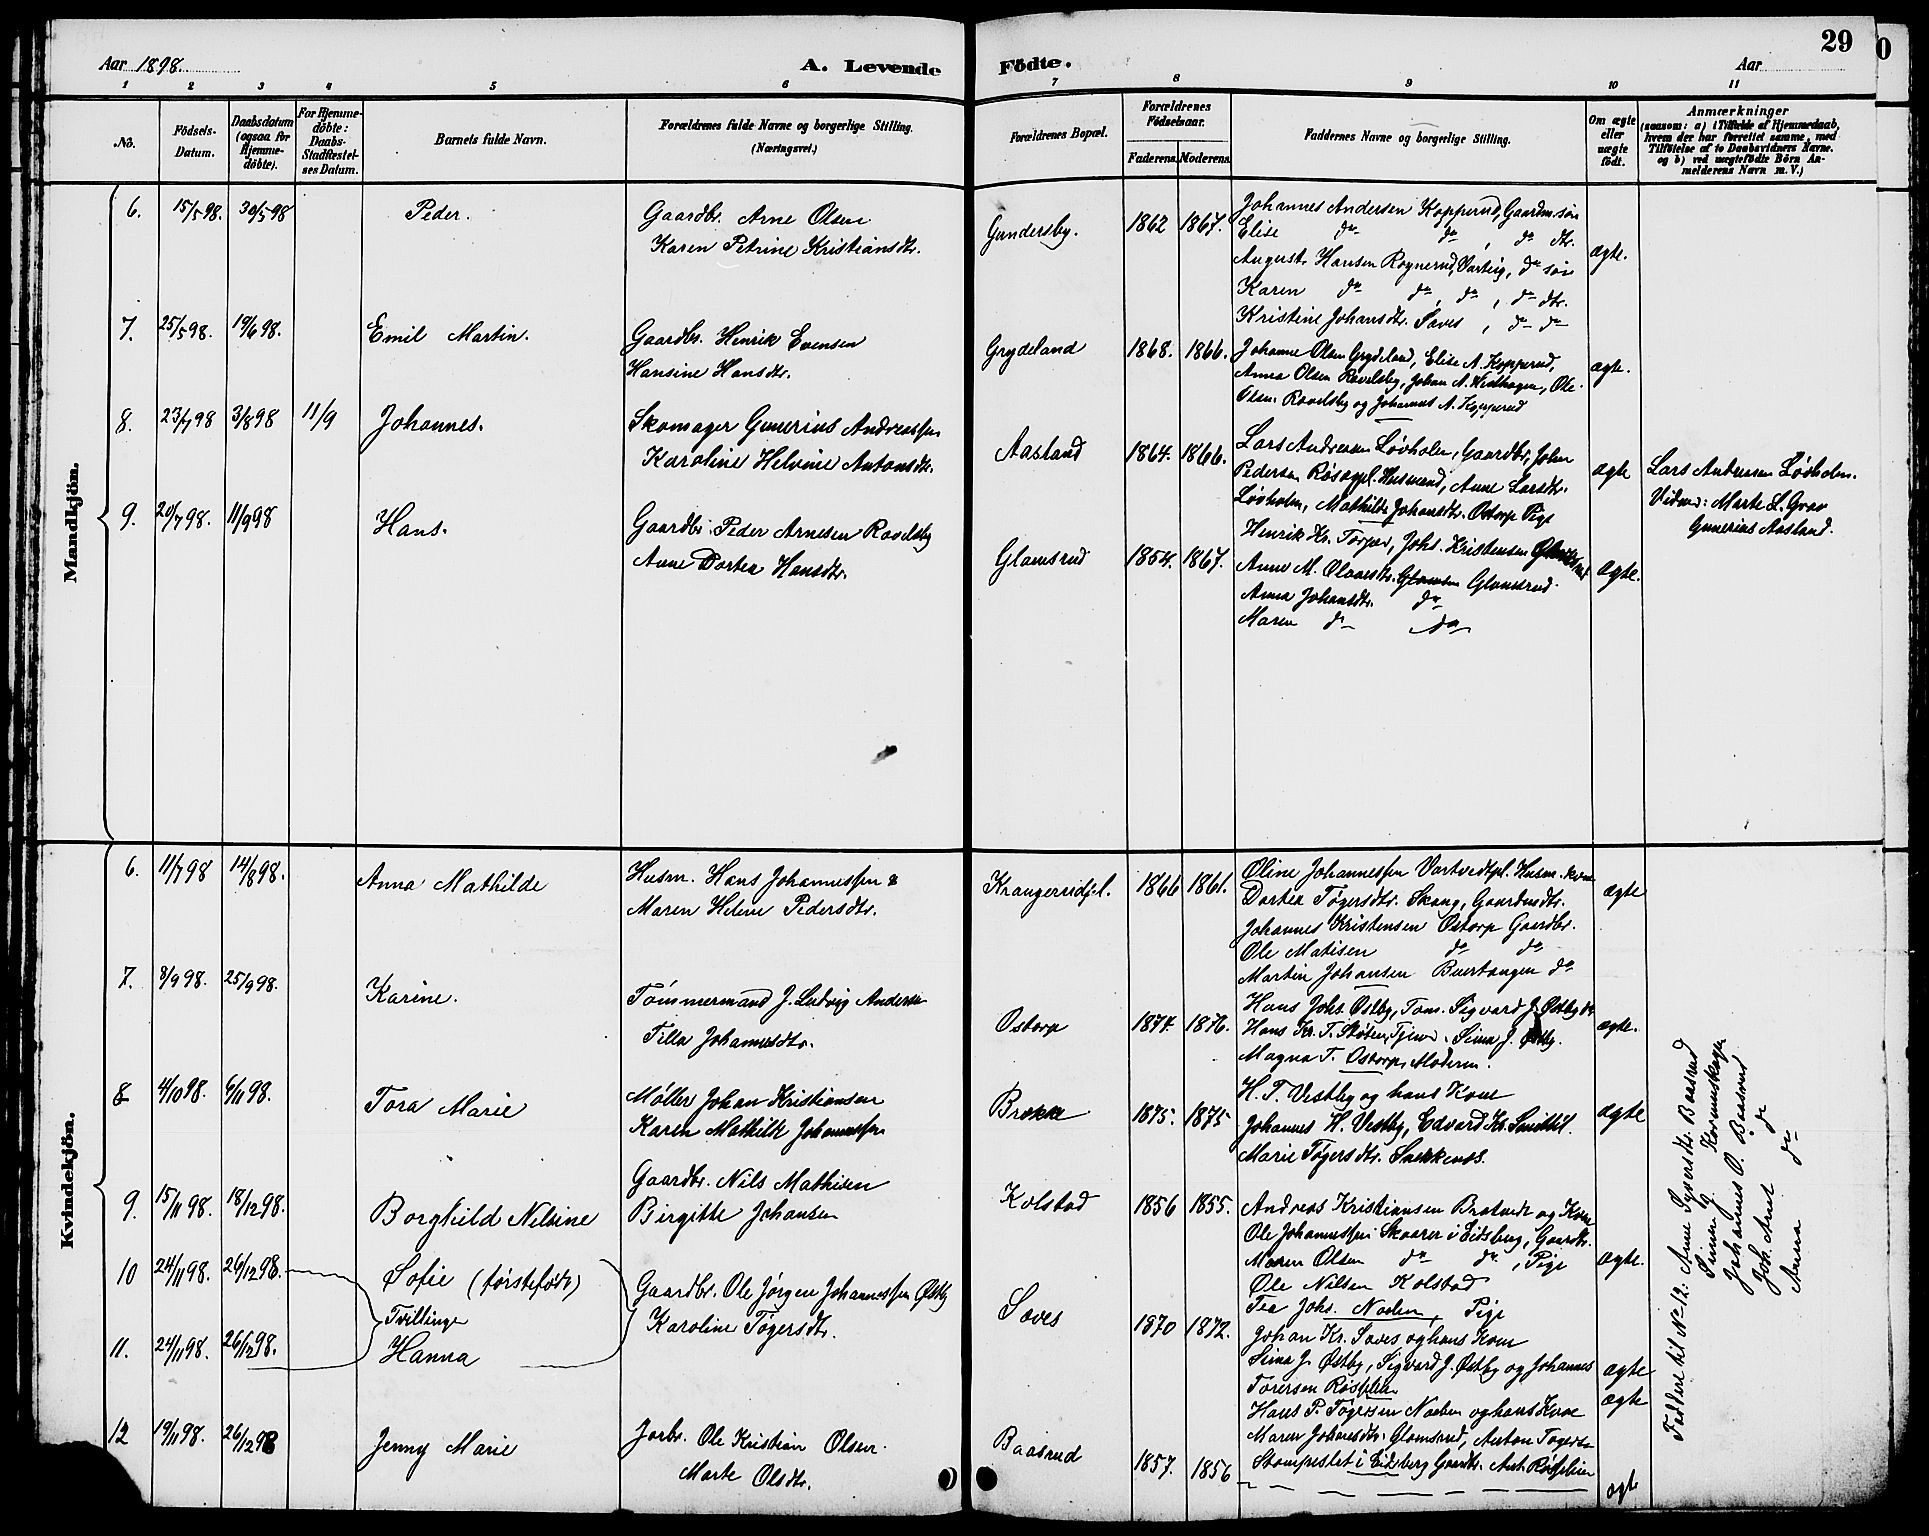 Aar 1898. A. Levende Födte. Aar 29
1 2 3 4 5 6 7 8 9 10 11
No.
Födsels-Datum.
Daabsdatum (ogsaa for Hjemme-döbte).
For Hjemme-döbte: Daabs-Stadfæstel-ses Datum.
Barnets fulde Navn.
Forældrenes fulde Navne og borgerlige Stilling. (Næringsvei.)
Forældrenes Bopæl.
Forældrenes Födselsaar.
Faderens. Moderens.
Faddernes Navne og borgerlige Stilling.
Om ægte eller uægte födt.
Anmærkninger
(saasom: a) i Tilfælde af Hjemmedaab,
hvem der har forrettet samme, med
Tilföielse af to Daabsvidners Navne.
og b) ved uægtefödte Börn An-
melderens Navn m. V.)
Mandkjön.
6. 15/5 98. 30/5 98 Peder. Gaardbr. Arne Olsen
Karen Petrine Kristiansdtr.
Gundersby. 1862 1867.
Johannes Andersen Kopperud, Gaardm.søn
Elise do do, do dtr.
August Hansen Rognerud, Varteig, do søn
Karen do do, do, do dtr.
Kristine Johansdtr. Saves, do do
ægte.
7. 25/5 98. 19/6 98. Emil Martin. Gaardbr. Henrik Evensen
Hansine Hansdtr.
Grydeland 1868. 1866.
Johanne Olsen Grydeland, Elise A. Kopperud,
Anna Olsen Ravelsby, Johan A. Westhagen, Ole
Olsen Ravelsby og Johannes A. Kopperud
ægte.
8. 23/7 98 3/8 98 11/9 Johannes. Skomager Gunerius Andreassen
Karoline Helvine Antonsdtr.
Aasland 1864. 1866.
Lars Andersen Løvholen, Gaardbr, John
Pedersen Røsægpl. Husmand, Anne Larsdtr.
Løvholen, Mathilde Johansdtr. Ostorp Pige
ægte
Lars Andersen Løvholen.
Vidner: Marte L. Grav
Gunerius Aasland.
9. 20/7 98. 11/9 98 Hans. Gaardbr. Peder Arnesen Ravelsby
Anne Dortea Hansdtr.
Glamsrud 1854. 1867.
Henrik Kr. Torper, Johs. Kristensen Glamsrud
Anne M. Olavesdtr. Glamsrud.
Anna Johansdtr. do
Maren do do
ægte.
Kvindekjön.
6. 11/7 98 14/8 98. Anna Mathilde Husm. Hans Johannessen &
Maren Helene Pedersdtr.
1866 1861.
Oline Johannessen Vartvedtpl. Husm. kone
Dortea Tøgersdtr. Skaug, Gaardmdtr.
Johannes Kristensen Ostorp Gaardbr.
Ole Matisen do do
Martin Johansen Buertangen do
ægte
7. 8/9 98. 25/9 98. Karine. Tømmermand J. Ludvig Andersen
Tilla Johannesdtr.
Ostorp 1874. 1876.
Hans Johs. Østby, Tøm. Sigvard J. Østby do
Hans Kr. T. Tjener. Sina J. Østby.
Magna T. Ostorp, Moderen.
ægte.
8 4/10 98. 6/11 98. Tora Marie Møller Johan Kristiansen
Karen Mathilde Johannessen
Brokke 1875. 1875
H. T. Vestby og hans Kone
Johannes H. Vestby, Edvard Kr.
Marie Tøgersdtr. Sækkenes.
ægte
9. 15/11 98. 18/12 98. Borghild Nelsine Gaardbr. Nils Mathisen
Birgitte Johansen
Kolstad 1856 1855.
Andreas Kristiansen Bratvedt og Kone
Ole Johannessen Skaarer i Eidsberg, Gaardbr.
Maren Olsen do do, Pige
Ole Nilsen Kolstad
Tea Johs. Noden, Pige
ægte.
10 24/11 98. 26/12 98. Sofie (førstefødt)
Tvillinge
Gaardbr. Ole Jørgen Johannessen Østby
Karoline Tøgersdtr.
Saves 1870 1872.
Johan Kr. Saves og hans Kone
Sina J. Østby, Sigvard J. Østby og Johannes
ægte
11. 24/11 98. 26/12 98. Hanna
Hans P. Tøgersen Noden og hans Kone
ægte
12 19/11 98. 26/12 98 Jenny Marie Jorbr. Ole Kristian Olsen.
Marte Olsdtr.
Baasrud 1857. 1856
Maren Johansdtr. Glamsrud, Anton Tøgersen
i Eidsberg Gaardbr.
ægte
Faddere til No 12: Anne Syversdtr. Baasrud
Simen Kornmskager
Johannes O. Baasrud
Joh. Arnt do
Anna do